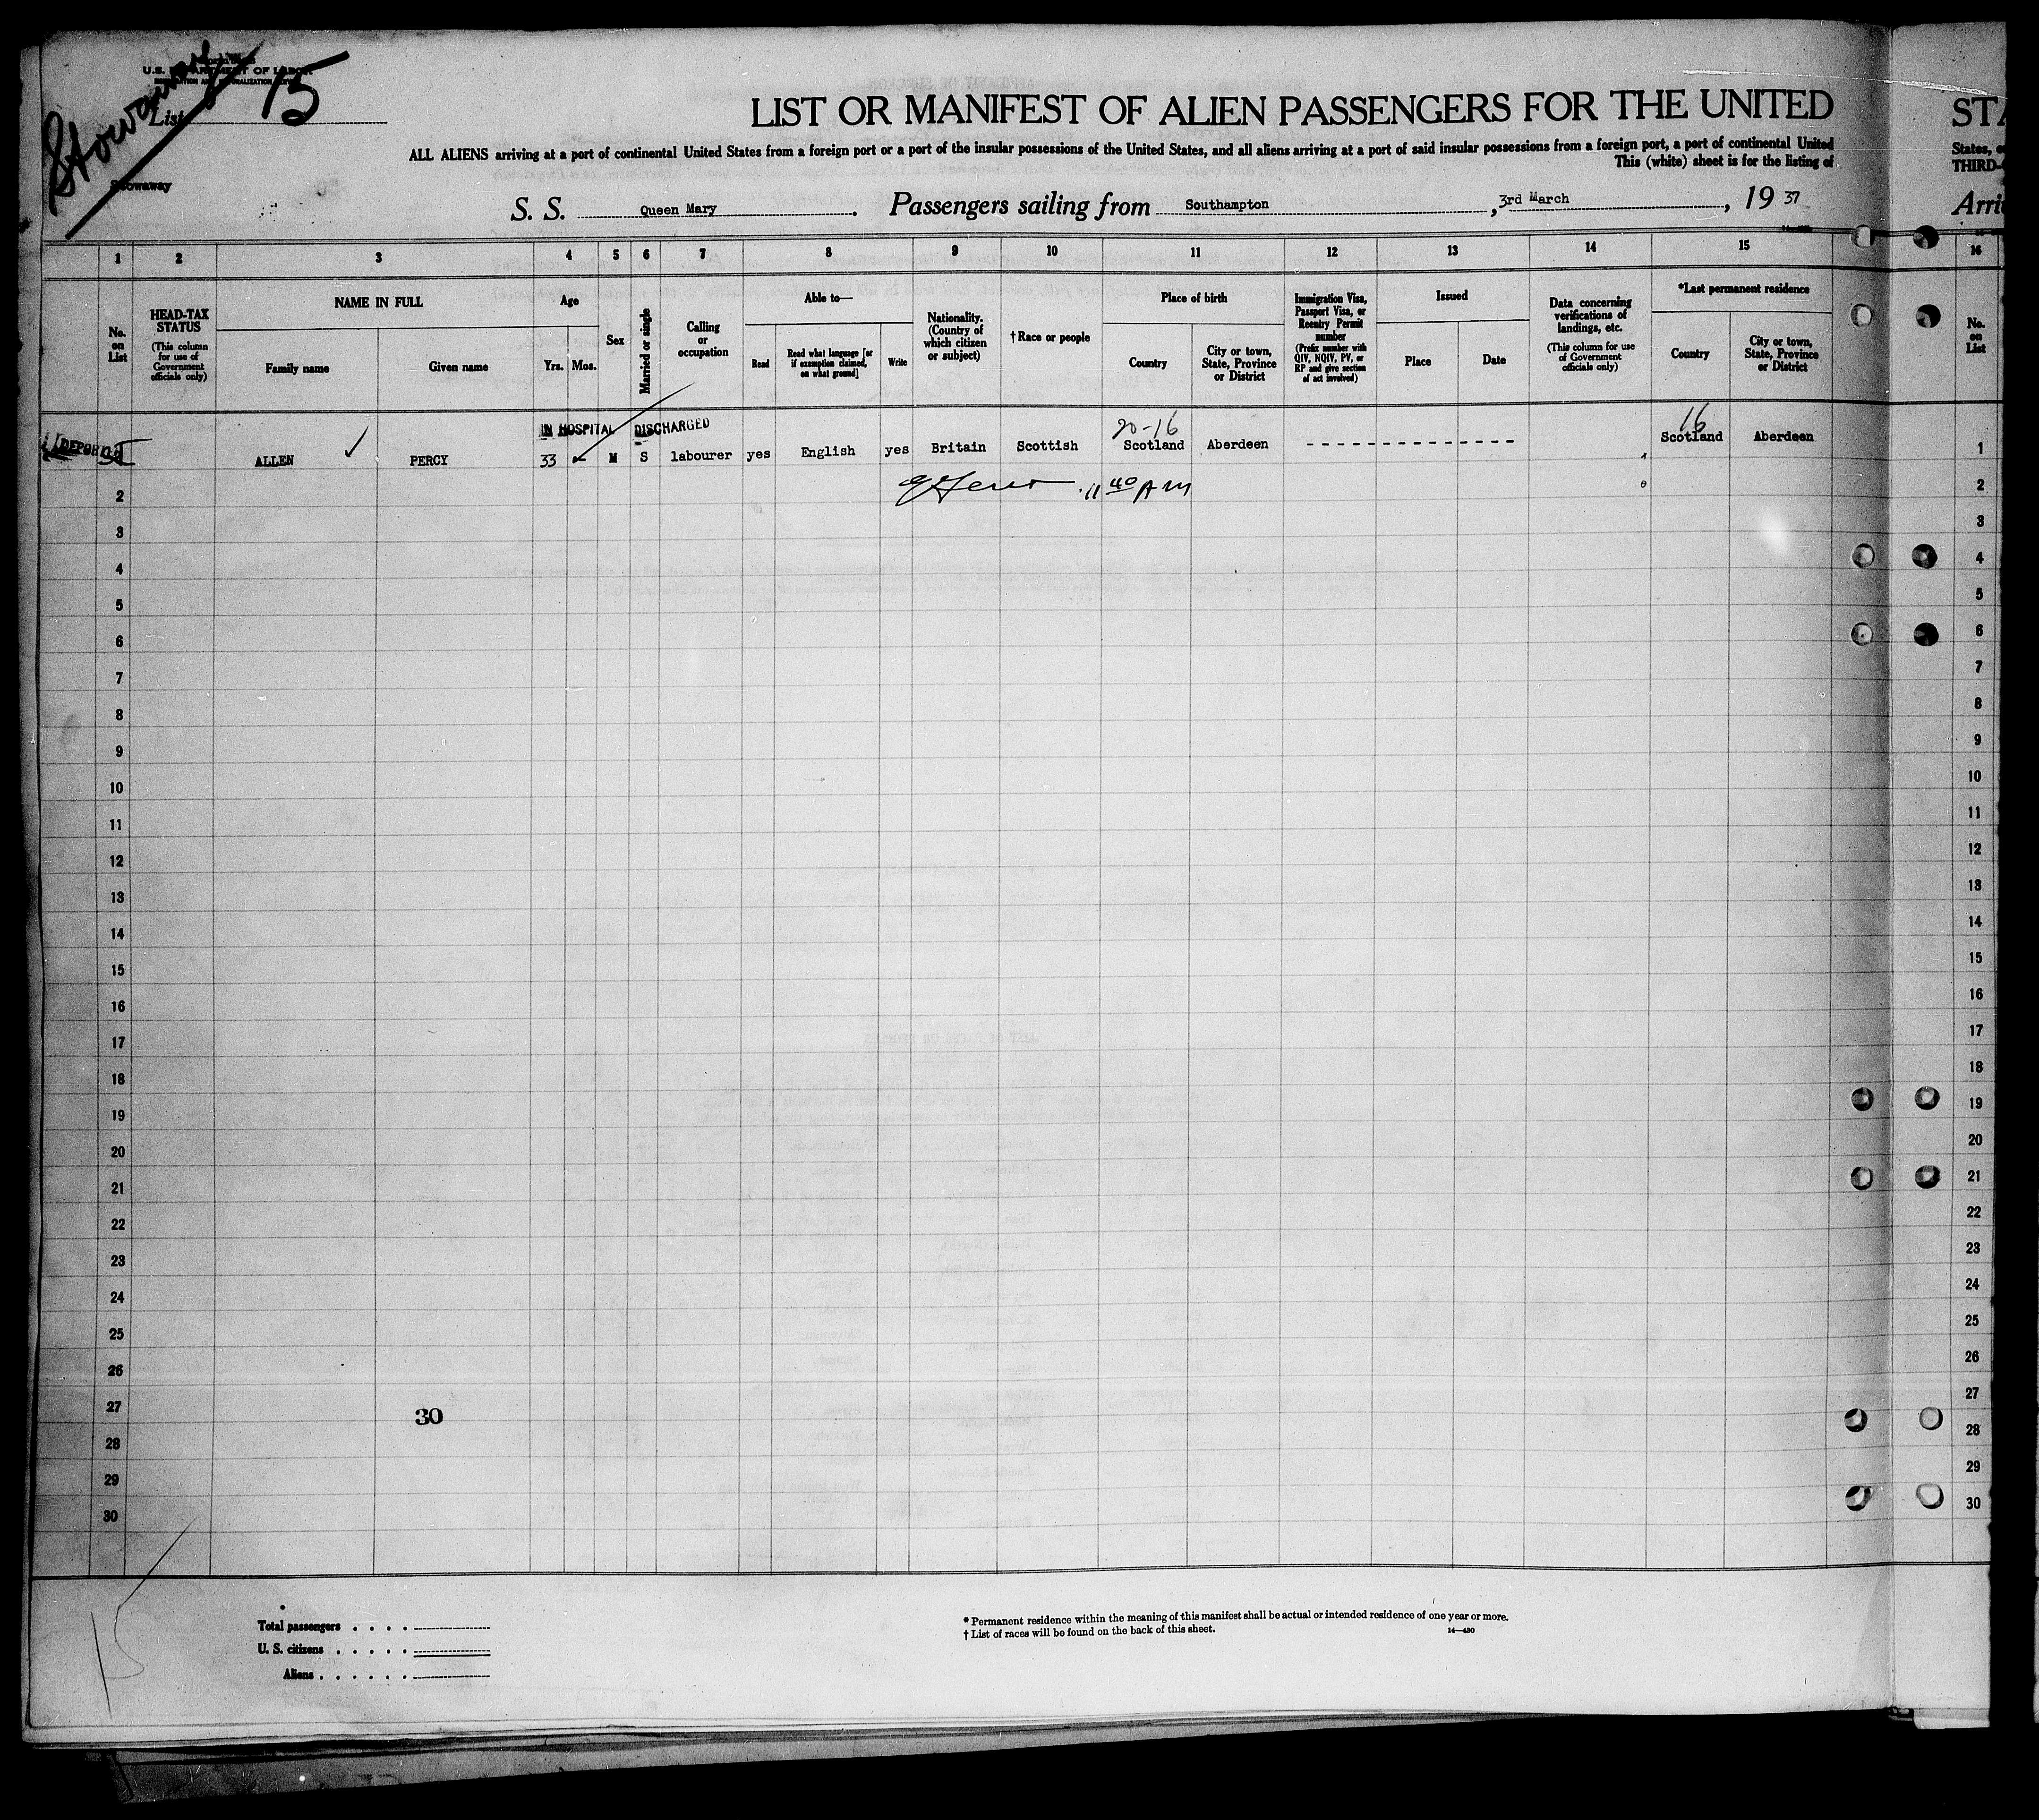 Stowaway
U.S. DEPARTMENT OF LABOR
IMMIGRATION AND NATURALIZATION SERVICE
List 15
Stowaway
LIST OR MANIFEST OF ALIEN PASSENGERS FOR THE UNITED
STA
ALL ALIENS arriving at a port of continental United States from a foreign port or a port of the insular possessions of the United States, and all aliens arriving at a port of said insular possessions from a foreign port, a port of continental United
States, o
This (white) sheet is for the listing of
THIRD-
S. S. Queen Mary. Passengers sailing from Southampton, 3rd March, 1937
Arri
1 2 3 4 5 6 7 8 9 10 11 12 13 14 15 16
No. on List
HEAD-TAX STATUS
(This column for use of Government officials only)
NAME IN FULL
Family name
Given name
Age
Yrs.
Mos.
Sex
Married or single
Calling or occupation
Able to—
Read
Read what language [or if exemption claimed, on what ground]
Write
Nationality. (Country of which citizen or subject)
†Race or people
Place of birth
Country
City or town, State, Province or District
Immigration Visa, Passport Visa, or Reentry Permit number
(Prefix number with QIV, NQIV, PV, or RP and give section of act involved)
Issued
Place
Date
Data concerning verifications of landings, etc.
(This column for use of Government officials only)
*Last permanent residence
Country
City or town, State, Province or District
No. on List
IN HOSPITAL DISCHARGED
20-16
16
DEPORTED
ALLEN PERCY 33 M S labourer yes English yes Britain Scottish Scotland Aberdeen - - - - - - - - - - - - - - - Scotland Aberdeen 1
11 40 AM
2 2
3 3
4 4
5 5
6 6
7 7
8 8
9 9
10 10
11 11
12 12
13 13
14 14
15 15
16 16
17 17
18 18
19 19
20 20
21 21
22 22
23 23
24 24
25 25
26 26
27 27
30
28 28
29 29
30 30
15
Total passengers . . . .
U. S. citizens . . . . .
Aliens . . . . . .
* Permanent residence within the meaning of this manifest shall be actual or intended residence of one year or more.
† List of races will be found on the back of this sheet.
14—430